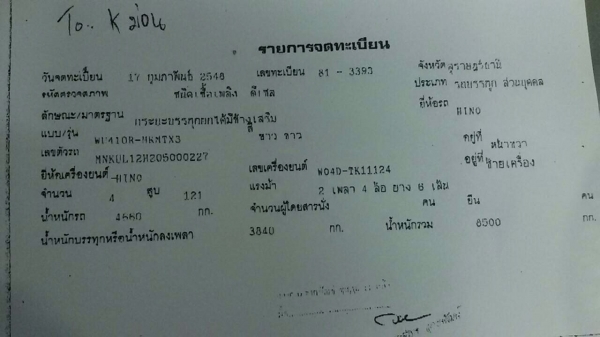 To.. K ม่อน
รายการจดทะเบียน
วันจดทะเบียน 17 กุมภาพันธ์ 2548 เลขทะเบียน 81 - 3393 จังหวัด สุราษฎร์ธานี
รหัสตรวจสภาพ ชนิดเชื้อเพลิง ดีเซล ประเภท รถบรรทุก ส่วนบุคคล
ลักษณะ/มาตรฐาน กระบะบรรทุกยกได้มีข้างเสริม ยี่ห้อรถ HINO
แบบ/รุ่น WU410R-HKMTX3 สี ขาว ขาว
เลขตัวรถ MNKUL12H205000227 อยู่ที่ หน้าขวา
ยี่ห้อเครื่องยนต์ HINO เลขเครื่องยนต์ W04D-TK11124 อยู่ที่ ซ้ายเครื่อง
จำนวน 4 สูบ 121 แรงม้า 2 เพลา 4 ล้อ ยาง 6 เส้น
น้ำหนักรถ 4660 กก. จำนวนผู้โดยสารนั่ง คน ยืน คน
น้ำหนักบรรทุกหรือน้ำหนักลงเพลา 3840 กก. น้ำหนักรวม 8500 กก.